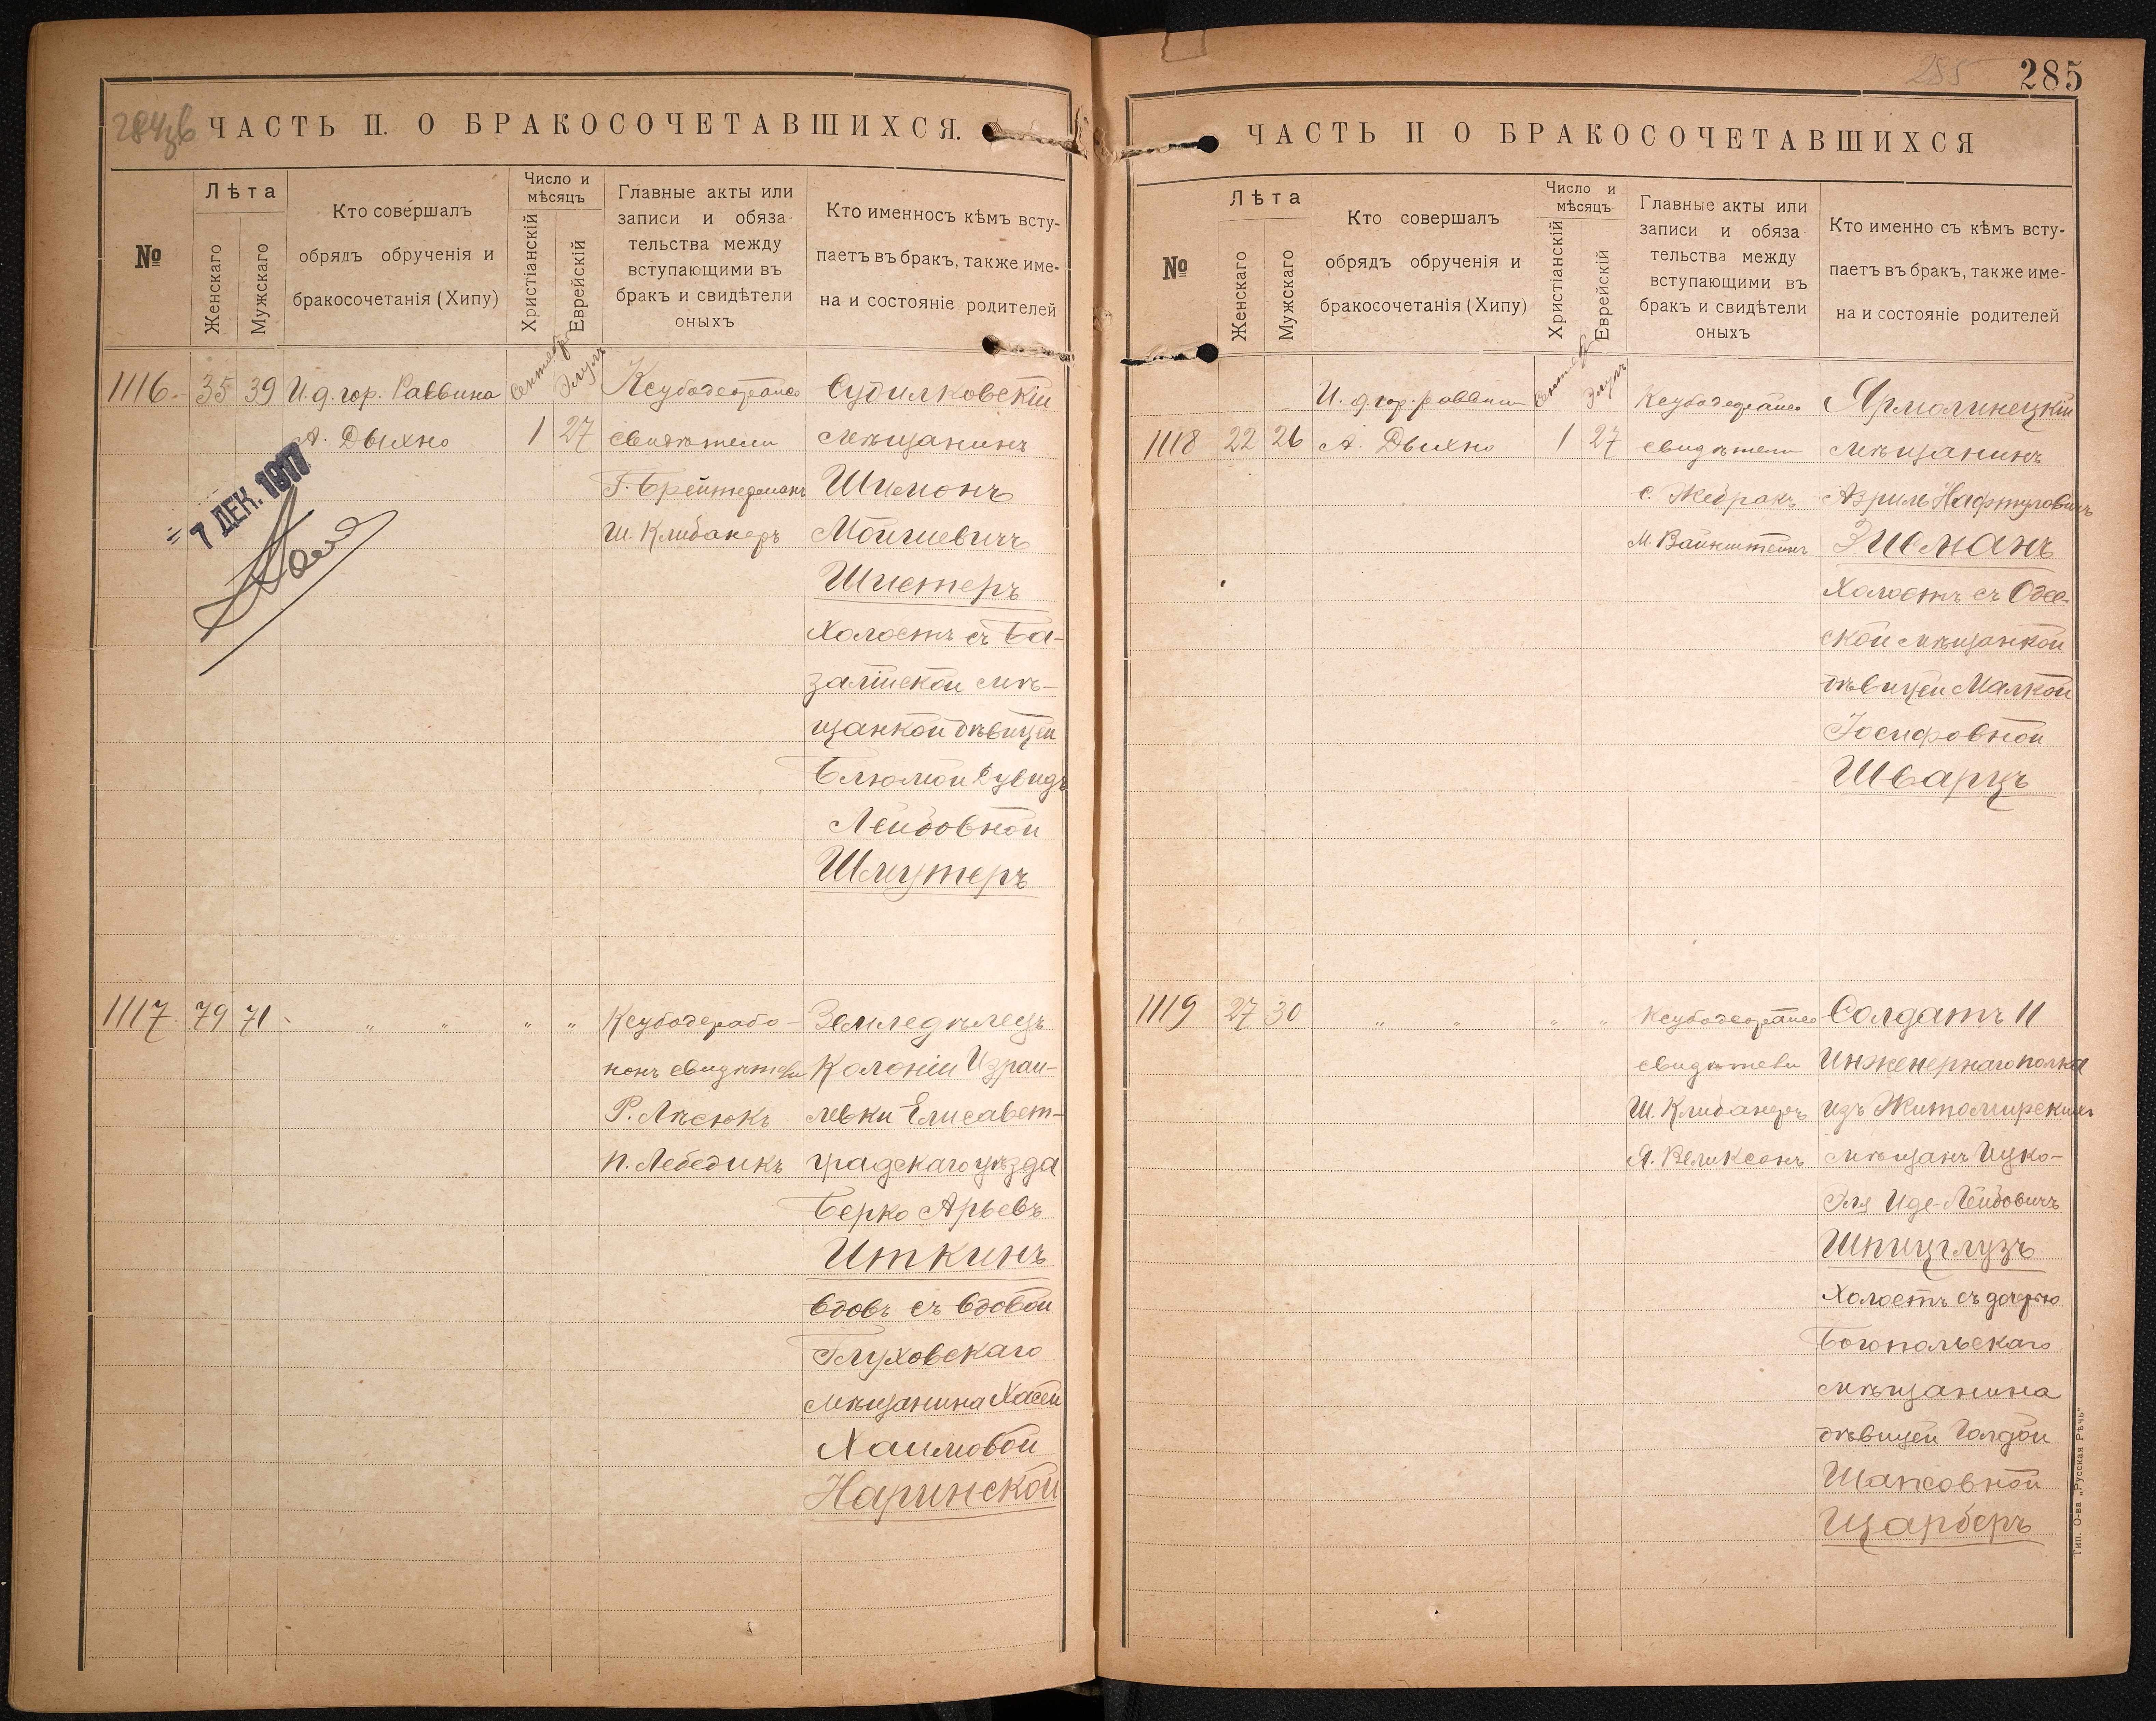 284об
ЧАСТЬ II. О БРАКОСОЧЕТАВШИХСЯ.
№
Лѣта
Женскаго
Мужскаго
Кто совершалъ
обрядъ обрученія и
бракосочетанія (Хипу)
Число и
мѣсяцъ
Христіанскій
Еврейскій
Главные акты или
записи и обяза-
тельства между
вступающими въ
бракъ и свидѣтели
оныхъ
Кто именносъ кѣмъ всту-
паетъ въ бракъ, также име-
на и состояніе родителей
1116. 35 39 И. д. гор. Раввина Сентябр Элулъ Судилковскій
А. Дыхно 1 27 свидѣтели мѣщанинъ
Шимонъ
Ш. Клибанеръ Мойшевичъ
Шистеръ
Холостъ съ Ба-
залійской мѣ-
щанкой дѣвицей
Блюмой
Лейбовной
Шмутеръ
7 ДЕК. 1917
1117. 79 71 " " " " Землядѣлецъ
нонъ свидѣтели Колоніи Израи-
Р. Лѣсюкъ левки Елисавет-
П. Лебедикъ градскаго уѣзда
Берко Арьевъ
Иткинъ
вдовъ съ вдовой
Глуховскаго
мѣщанина Хасей
Хаимовой
Наринской
285
285
ЧАСТЬ II О БРАКОСОЧЕТАВШИХСЯ
№
Лѣта
Женскаго
Мужскаго
Кто совершалъ
обрядъ обрученія и
бракосочетанія (Хипу)
Число и
мѣсяцъ
Христіанскій
Еврейскій
Главные акты или
записи и обяза-
тельства между
вступающими въ
бракъ и свидѣтели
оныхъ
Кто именно съ кѣмъ всту-
паетъ въ бракъ, также име-
на и состояніе родителей
И. д. гор. раввина Сентябр Элулъ Ярмолинецкій
1118 22 26 А. Дыхно 1 27 свидѣтели мѣщанинъ
С. Жебракъ Азриль Нафтуловичъ
М. Вайнштейнъ Зисманъ
Холостъ съ Одес-
ской мѣщанкой
дѣвицей Малкой
Іосифовной
Шварцъ
1119 27 30 " " " " Солдатъ 11
свидѣтели Инженернаго полка
Ш. Клибанеръ изъ Житомирскихъ
Я. Великсонъ мѣщанъ Ицко-
Эля Иде-Лейбовичъ
Шпицглузъ
Холостъ съ дочерью
Богопольскаго
мѣщанина
дѣвицей Голдой
Шапсовной
Царберъ
Тип. О-ва „Русская Рѣчь"